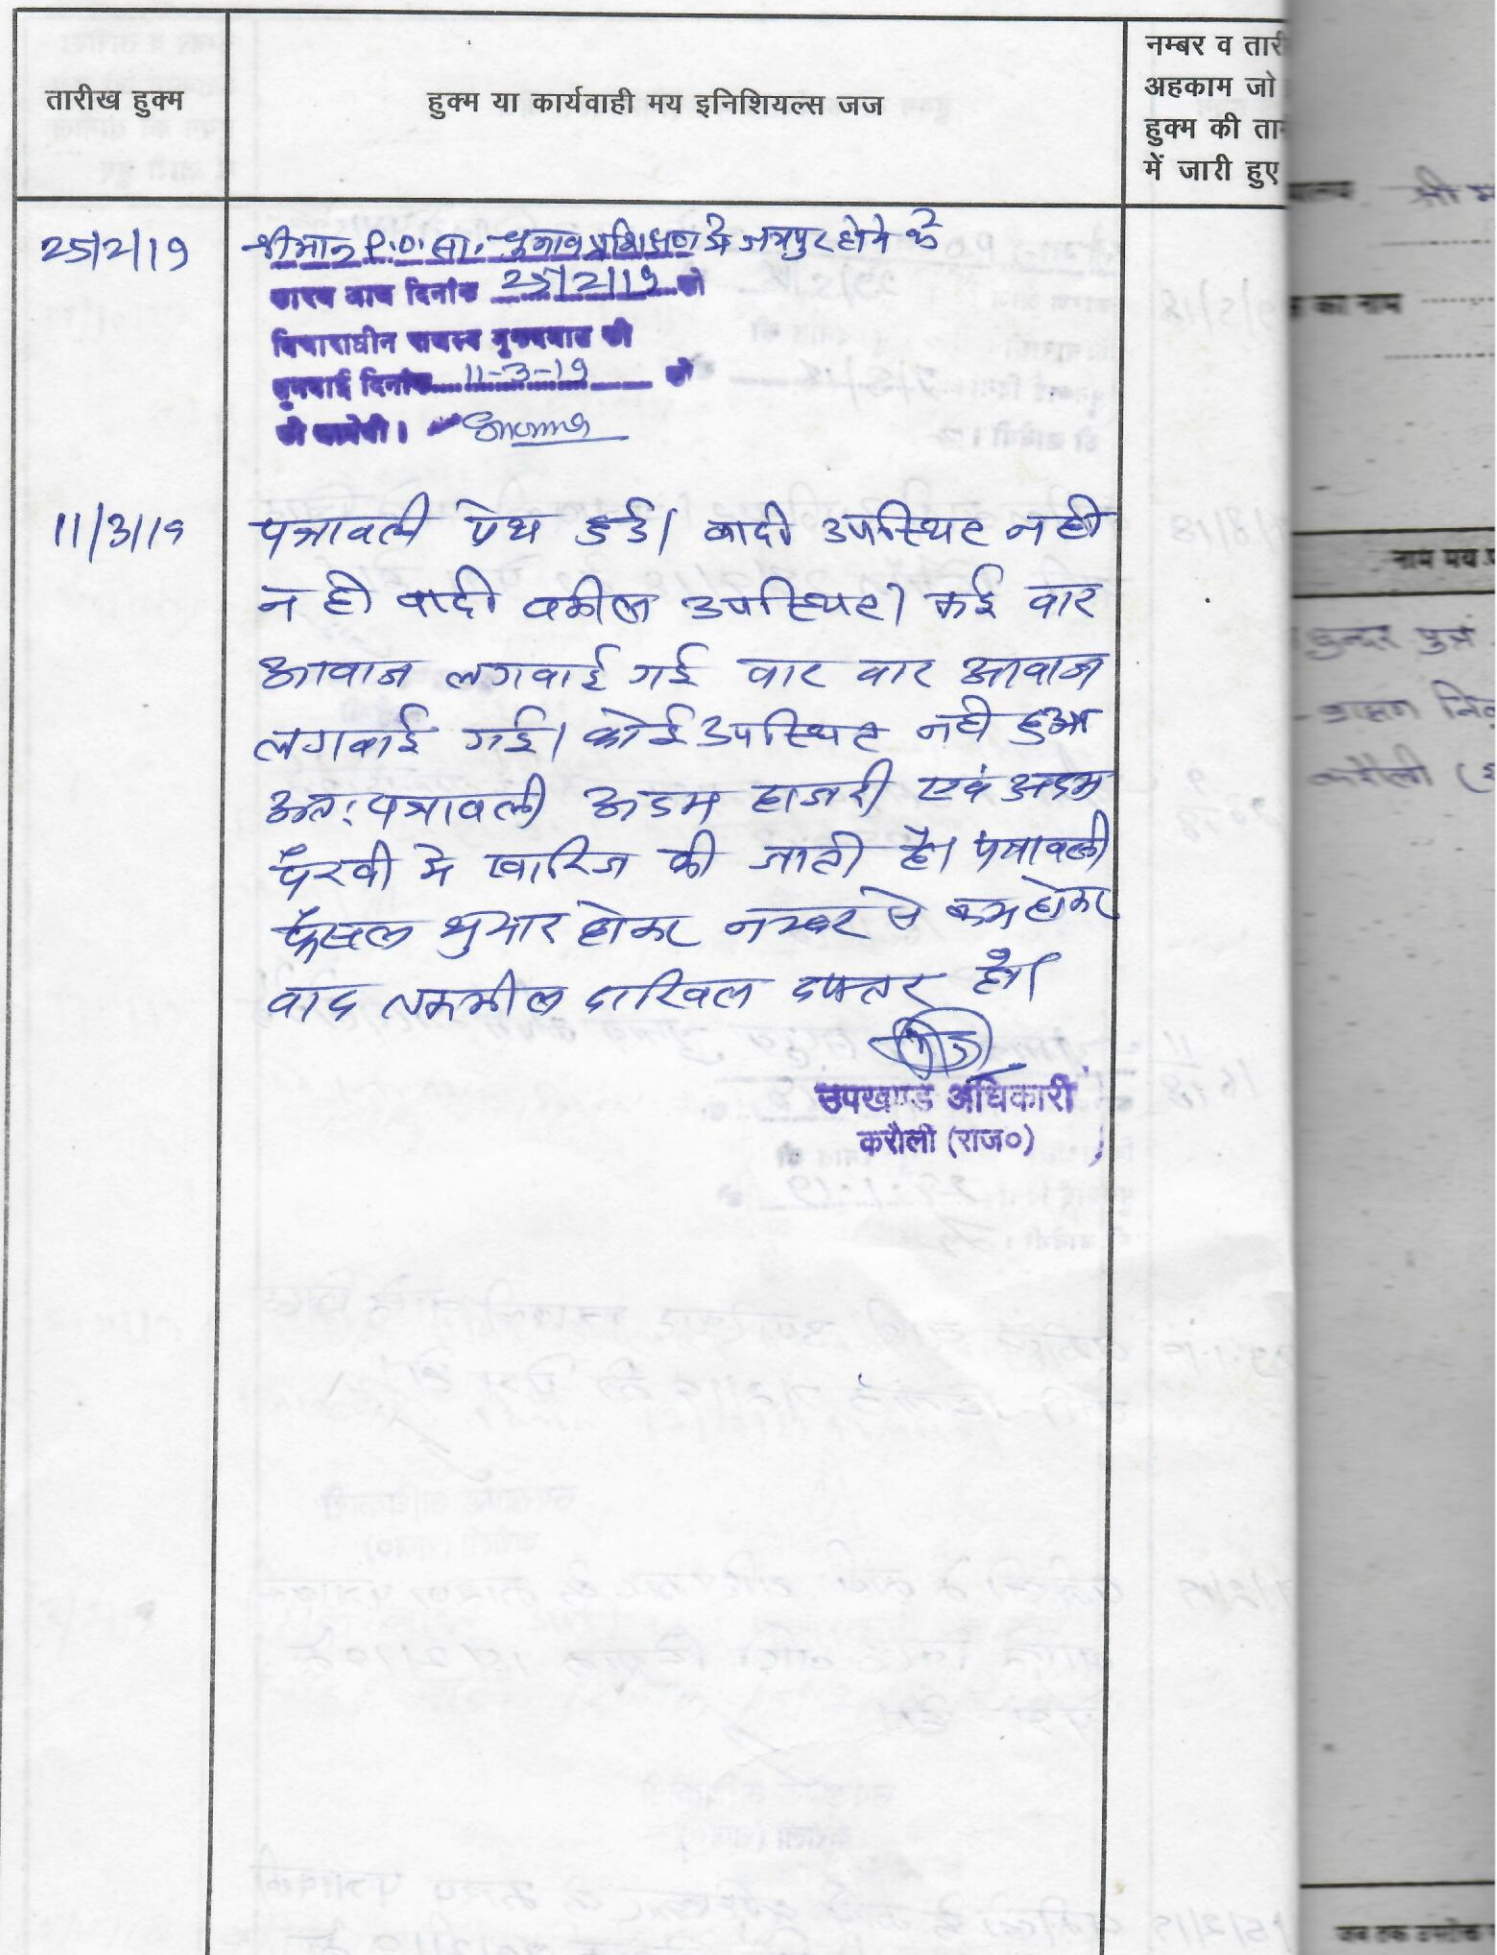 तारीख हुक्म
हुक्म या कार्यवाही मय इनिशियल्स जज
नम्बर व तारी
अहकाम जो
हुक्म की ता
में जारी हुए
25/2/19
श्रीमान P.O. सा. चुनाव प्रशिक्षण में जयपुर होने के
कारण आज दिनांक 25/2/19 को
विचाराधीन समस्त मुकदमात की
सुनवाई दिनांक 11-3-19 को
की जायेगी।
11/3/19
पत्रावली पेश हुई। वादी उपस्थित नही
न ही वादी वकील उपस्थित। कई वार
आवाज लगवाई गई वार वार आवाज
लगवाई गई। कोई उपस्थित नही हुआ
अतः पत्रावली अदम हाजरी एवं अदम
पैरवी मे खारिज की जाती है। पत्रावली
फैसल शुमार होकर नम्बर से कम होकर
वाद तकमील दाखिल दफ्तर हो।
उपखण्ड अधिकारी
करौली (राज०)
का नाम
नाम मय
पुत्र
करौली (